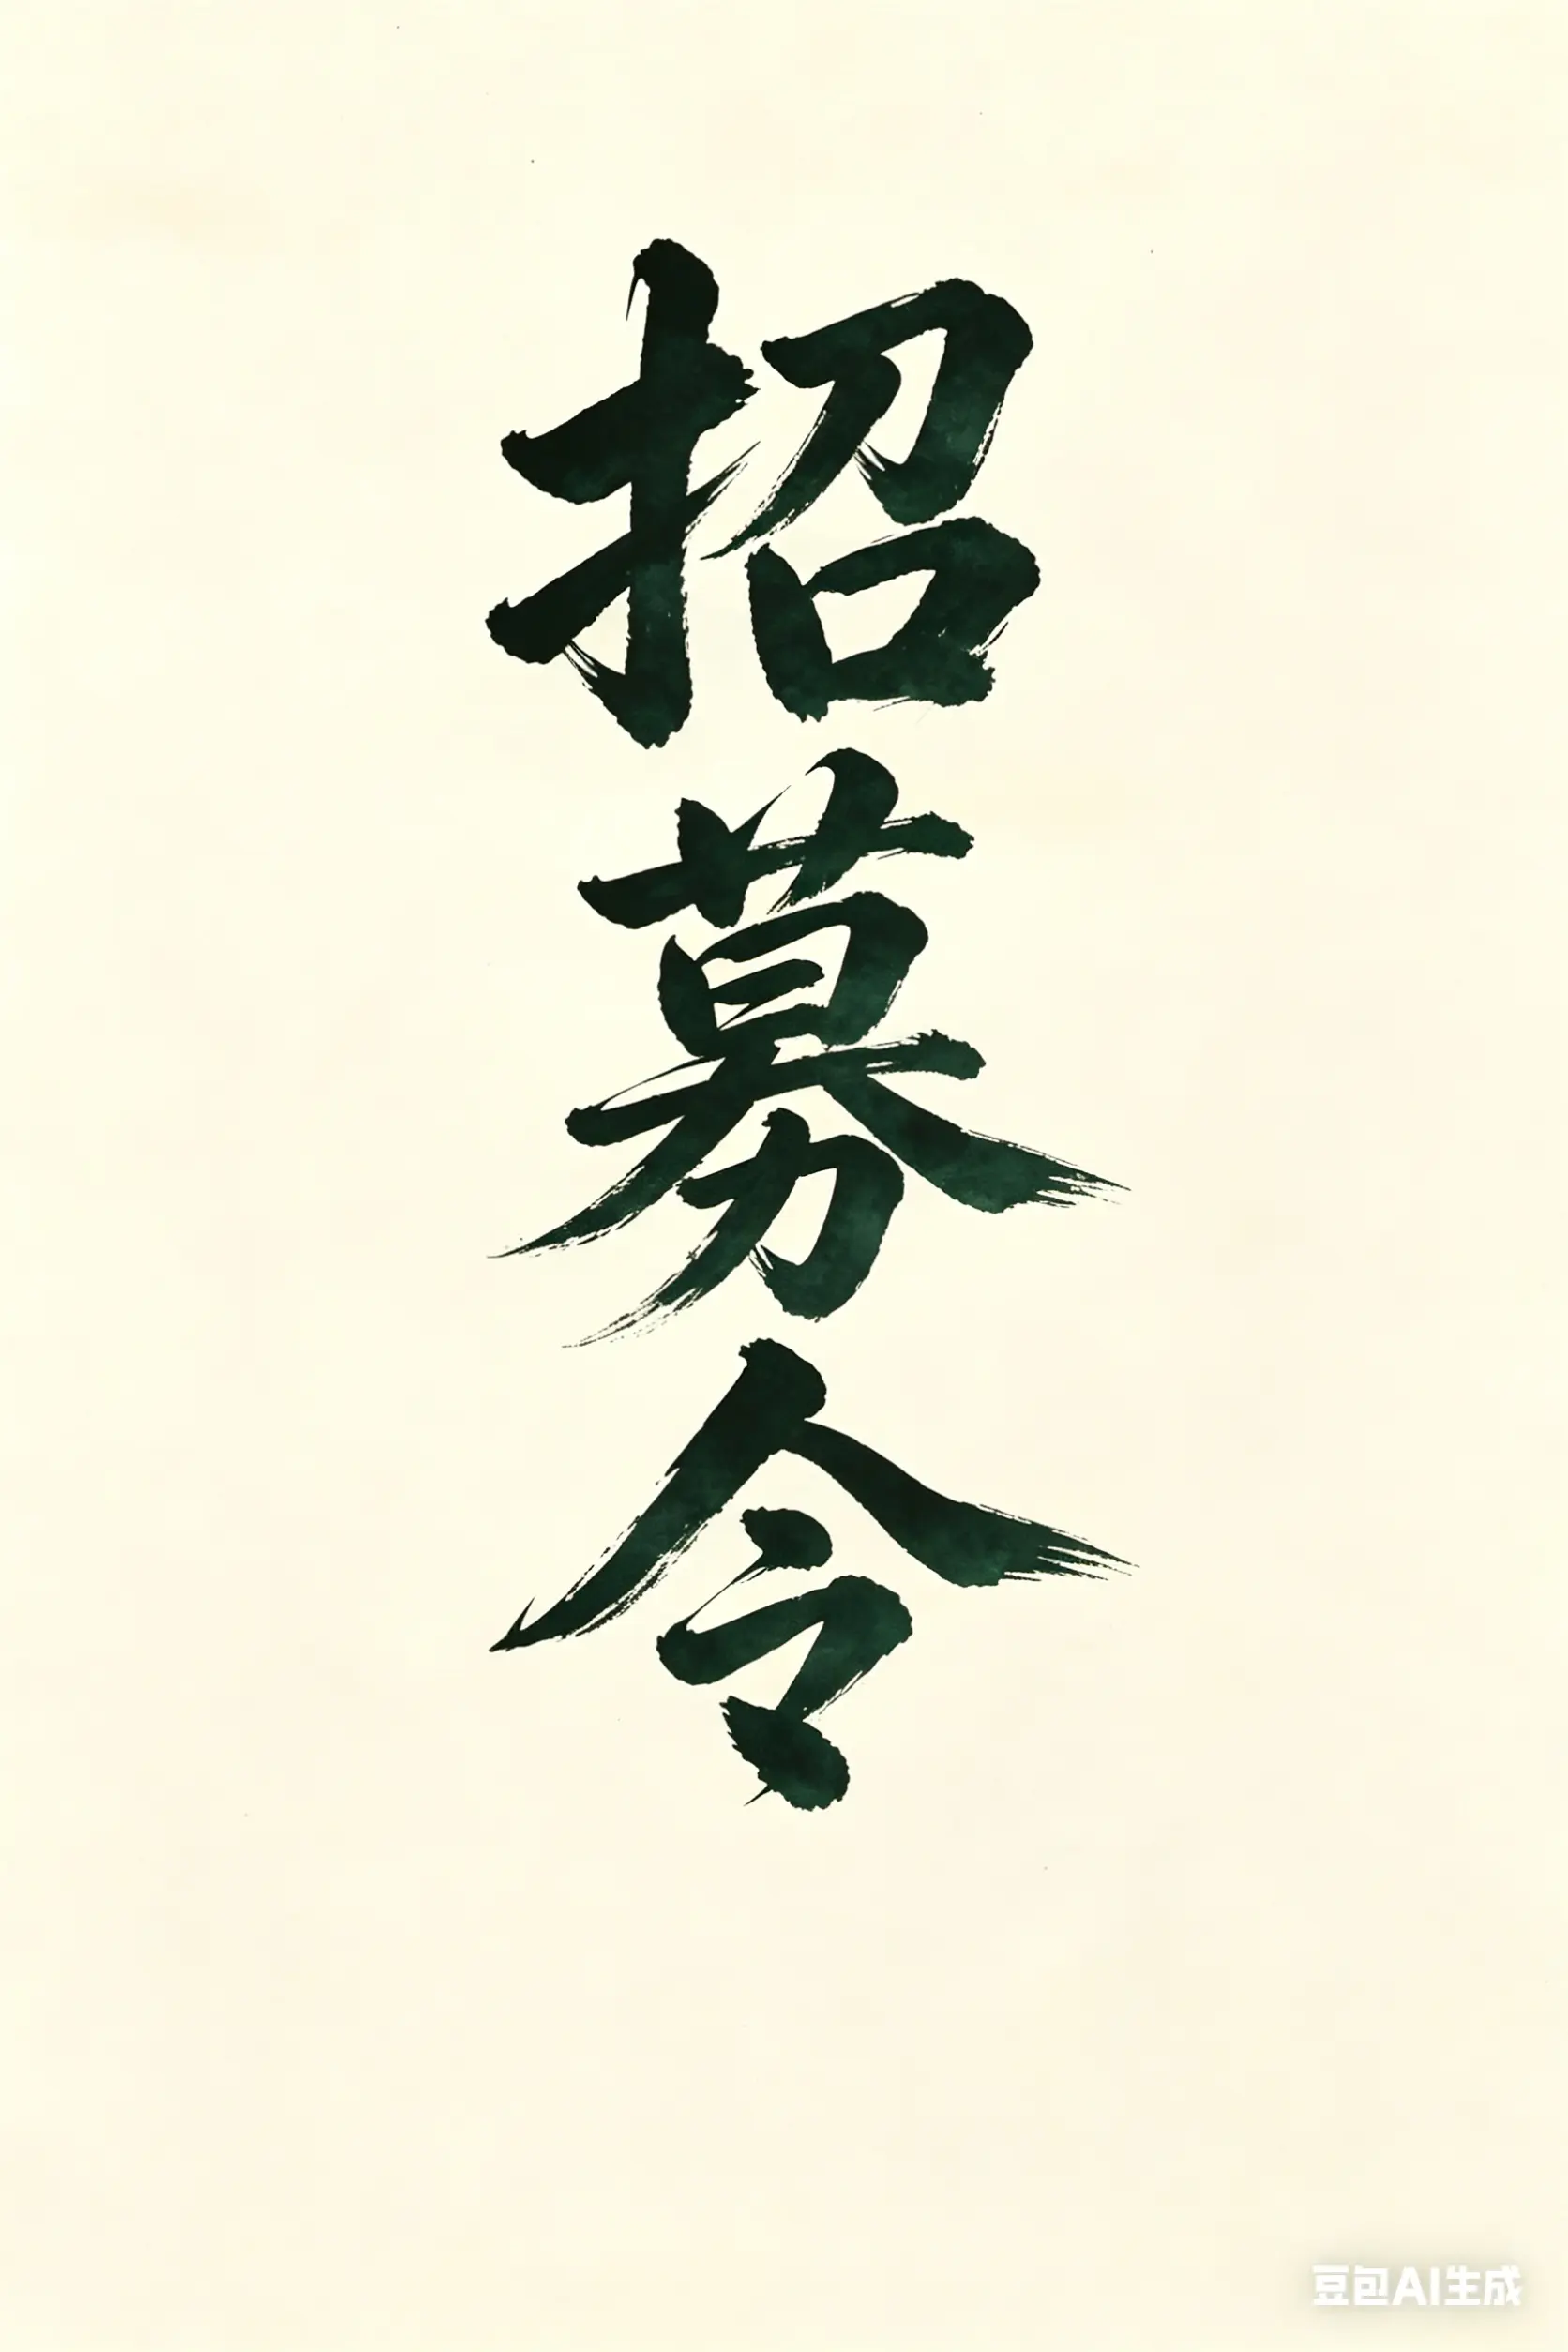 招募令
豆包AI生成